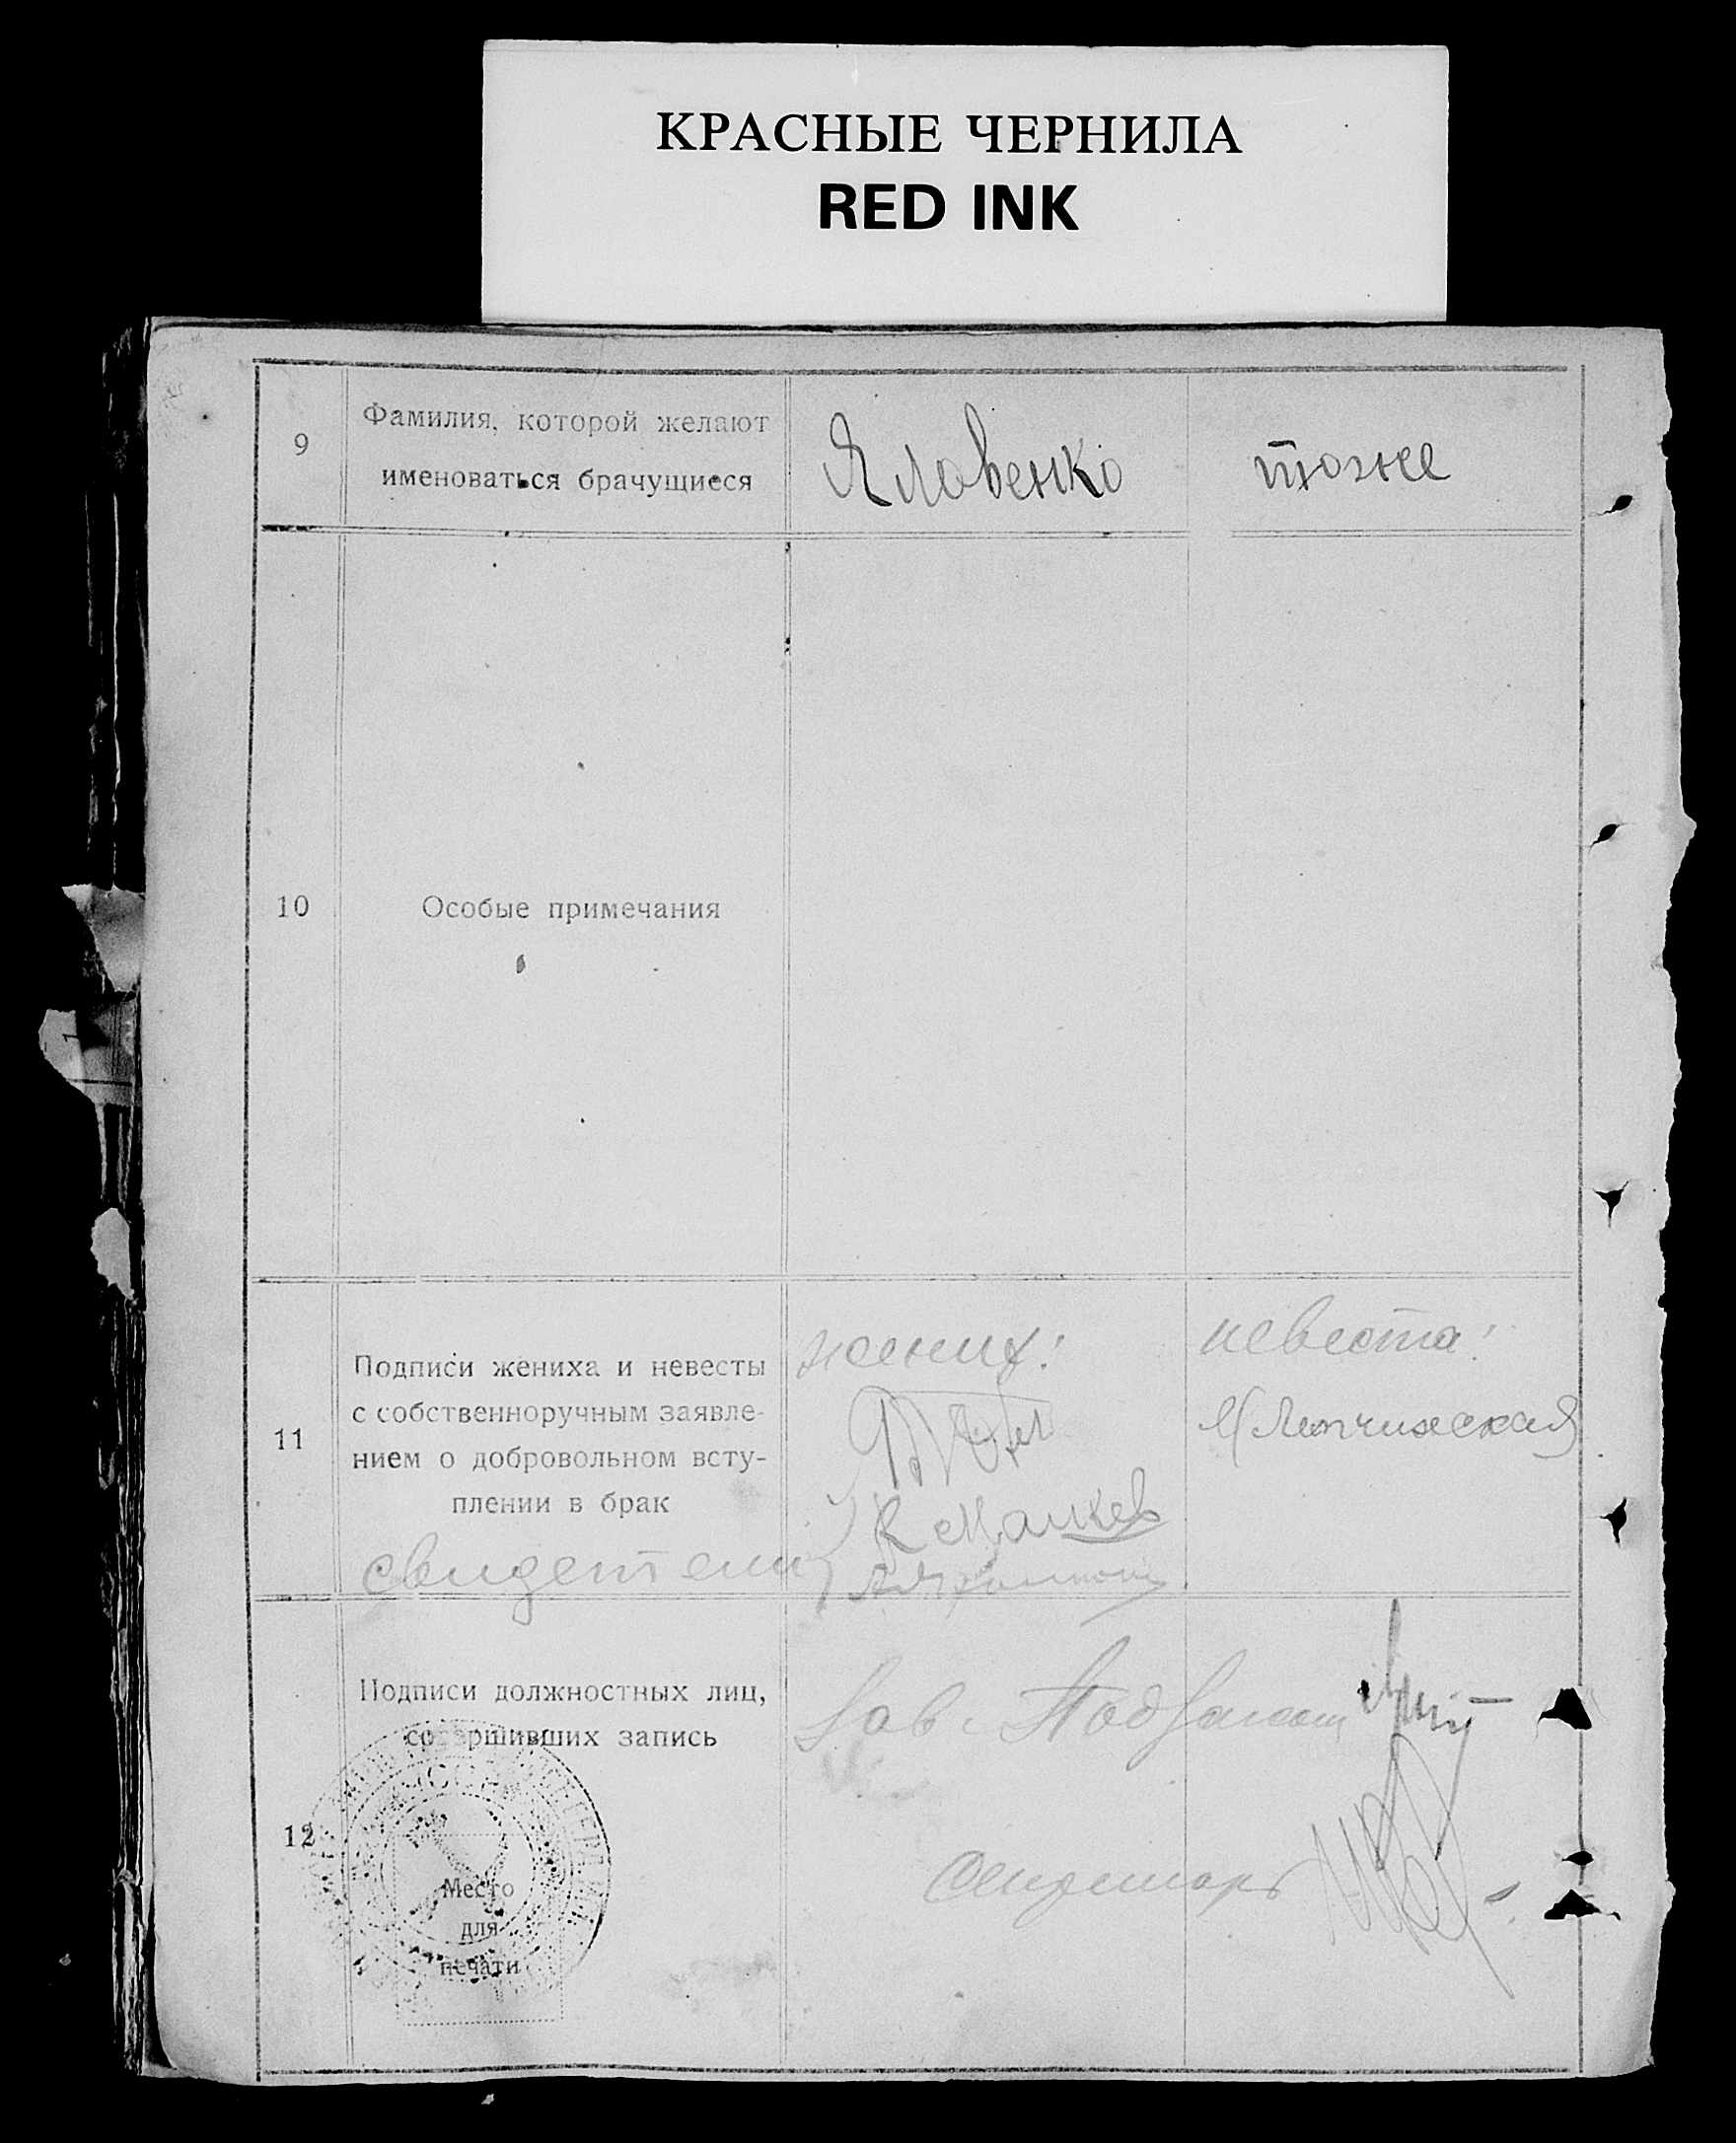 КРАСНЫЕ ЧЕРНИЛА
RED INK
9
Фамилия, которой желают
именоваться брачущиеся
Яловенко
тоже
10
Особые примечания
11
Подписи жениха и невесты
с собственноручным заявле-
нием о добровольном всту-
плении в брак
жених:
невеста:
свидетели
12
Подписи должностных лиц,
совершивших запись
Зав.
УССР
Место
для
печати